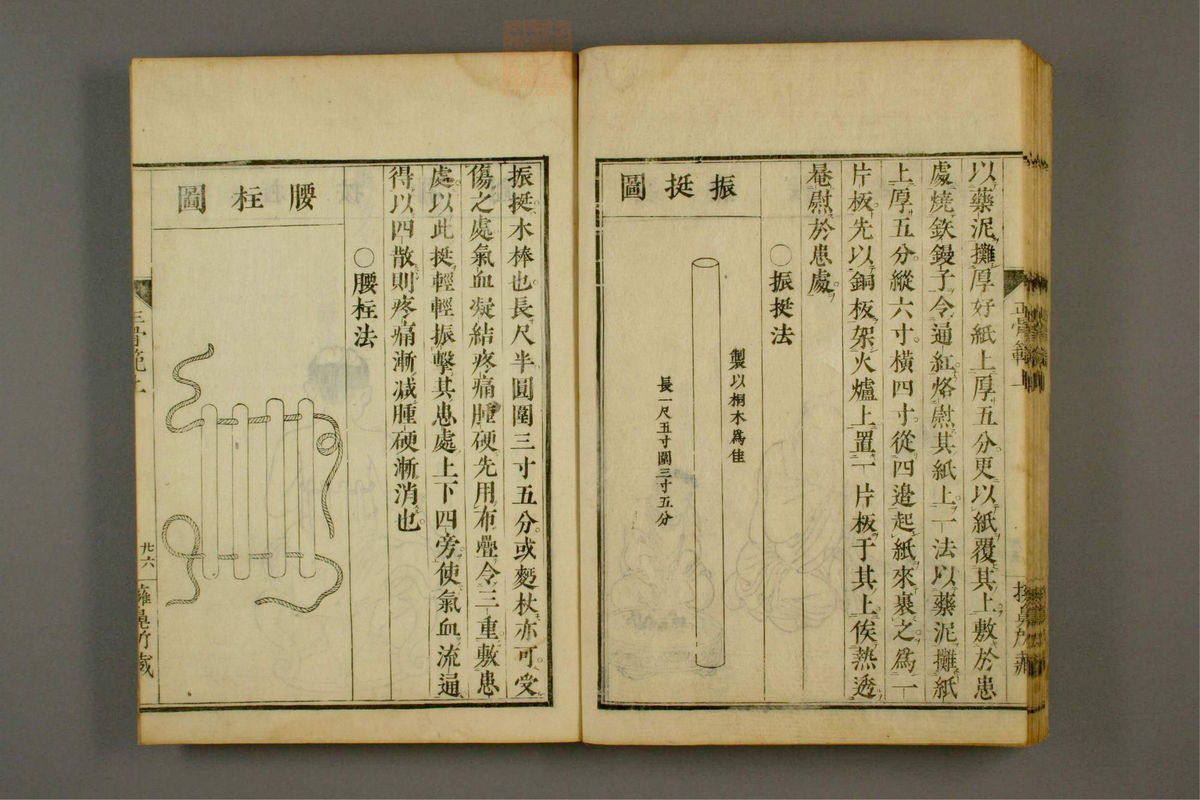 以藥泥攤厚好紙上厚五分更以紙覆其上敷於患
處燒鉄鏝子令通紅烙慰其紙上一法以藥泥攤紙
上厚五分縱六寸橫四寸從四邊起紙來裹之爲一
片板先以銅板架火爐上置一片板于其上俟熱透
罨慰於患處
〇振挺法
振挺圖
製以桐木爲佳
長一尺五寸圍三寸五分
振挺木棒也長尺半圓圍三寸五分或麪杖亦可受
傷之處氣血凝結疼痛腫硬先用布疊令三重敷患
處以此挺輕輕振擊其患處上下四旁使氣血流通
得以四散則疼痛漸減腫硬漸消也
〇腰柱法
腰柱圖
正骨範上
廿六